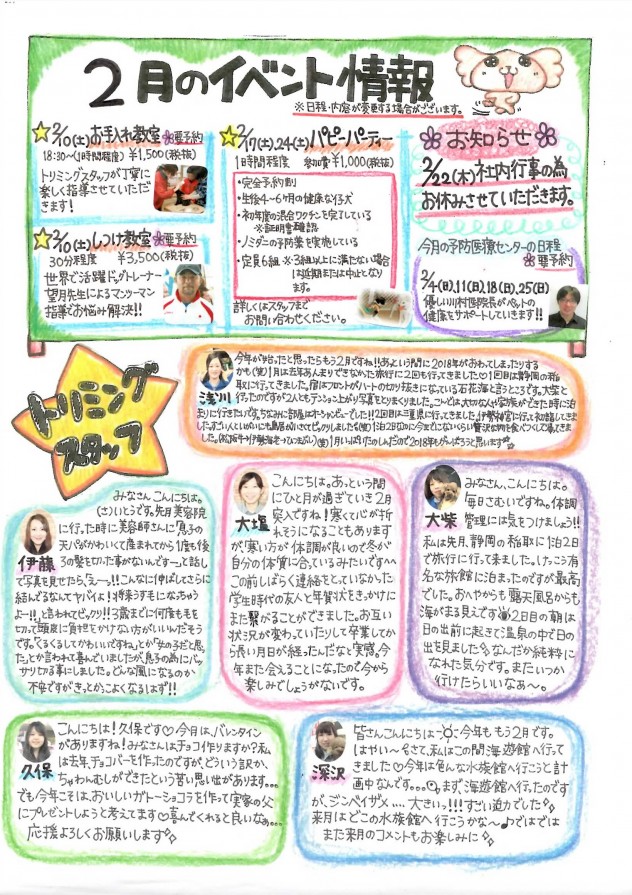 2月のイベント情報
※日程・内容が変更する場合がございます。
2/10(土)お手入れ教室 要予約
18:30〜(1時間程度) ¥1,500(税抜)
トリミングスタッフが丁寧に
楽しく指導させていただ
きます!
2/10(土)しつけ教室 要予約
30分程度 ¥3,500(税抜)
世界で活躍ドッグトレーナー
望月先生によるマンツーマン
指導でお悩み解決!!
2/17(土),24(土)パピーパーティー
1時間程度 参加費¥1,000(税抜)
・完全予約制
・生後4〜6ヶ月の健康な仔犬
・初年度の混合ワクチン完了している
※証明書確認
・ノミダニの予防薬を実施している
・定員6組 ※3組以上に満たない場合
は延期または中止となり
ます。
詳しくはスタッフまで
お問い合わせください。
お知らせ
2/22(木)社内行事の為
お休みさせていただきます。
今月の予防医療センターの日程
要予約
2/4(日),11(日),18(日),25(日)
優しい川村医院長がペットの
健康をサポートしていきます!!
トリミング
スタッフ
浅川
今年が始まったと思ったらもう2月ですね!!あっという間に2018年がおわってしまったりする
かも(笑)1月は去年あんまりできなかった旅行に2回も行ってきました♡1回目は静岡の稲
取に行ってきました。宿はフロントがハートの切り抜きになっている石花海と言うところです。大柴と
行ったのですが2人ともテンション上がり写真をとりまくりました。こんどは大切な人や家族ができた時に泊
まりに行きたいです。ちなみに部屋はオーシャンビューでした!!2回目は三重県に行ってきました。伊勢神宮に行って初詣してき
伊藤
みなさん、こんにちは。
(さ)いとうです。先月美容院
に行った時に美容師さんに「息子の
天パがかわいくて産まれてから1度も後
ろの髪を切った事がないんですー」と話し
て写真を見せたら、「えーっ!!こんなに伸ばしてさらに
結んでるなんてヤバイよ!将来うすモになっちゃう
よー!!」と言われてビックリ!!3歳までに何度も毛を
切って頭皮に負担をかけない方がいいんだそう
です。「くるくるしてかわいいですね」とか「女の子だと思っ
た」とか言われて喜んでいましたが、息子の為にバッ
サリ切る事にしました。どんな風になるのか
不安ですが、きっとかっこよくなるはず!!
大塩
こんにちは。あっという間
にひと月が過ぎていき2月
突入ですね!寒くて心が折
れそうになることもあります
が、寒い方が体調が良いので冬が
自分の体質に合っているみたいです
この前しばらく連絡をとっていなかった
学生時代の友人と年賀状をきっかけに
また繋がることができました。お互い
状況が変わっていたりして卒業してか
ら長い月日が経ったんだなと実感。今
年また会えることになったので今から
楽しみでしょうがないです。
大柴
みなさん、こんにちは。
毎日さむいですね。体調
管理には気をつけましょう!!
私は先月、静岡の稲取に1泊2日
で旅行に行って来ました。けっこう有
名な旅館に泊まったのですが最高
でした。おへやからも露天風呂からも
海がまる見えです 2日目の朝は
日の出前に起きて温泉の中で日の
出を見ました なんだか純粋に
なれた気分です。またいつか
行けたらいいなあ〜。
久保
こんにちは!久保です♡今月は、バレンタイン
がありますね!みなさんはチョコ作りますか?私
は去年、チョコバーを作ったのですが、どういう訳か、
ちゃわんむしができたという苦い思い出があります。。。
でも今年こそは、おいしいガトーショコラを作って実家の父
にプレゼントしようと考えてます♡喜んでくれると良いなぁ。。。
応援よろしくお願いします
深沢
皆さんこんにちは 今年ももう2月です。
はやい〜 さて、私はこの間海遊館へ行って
きました♡今年は色んな水族館へ行こうと計
画中なんです。。。 まず、海遊館へ行ったのです
が、ジンベイザメ....大きいっ!!!すごい迫力でした
来月はどこの水族館へ行こうかな〜♪ではでは
また来月のコメントもお楽しみに